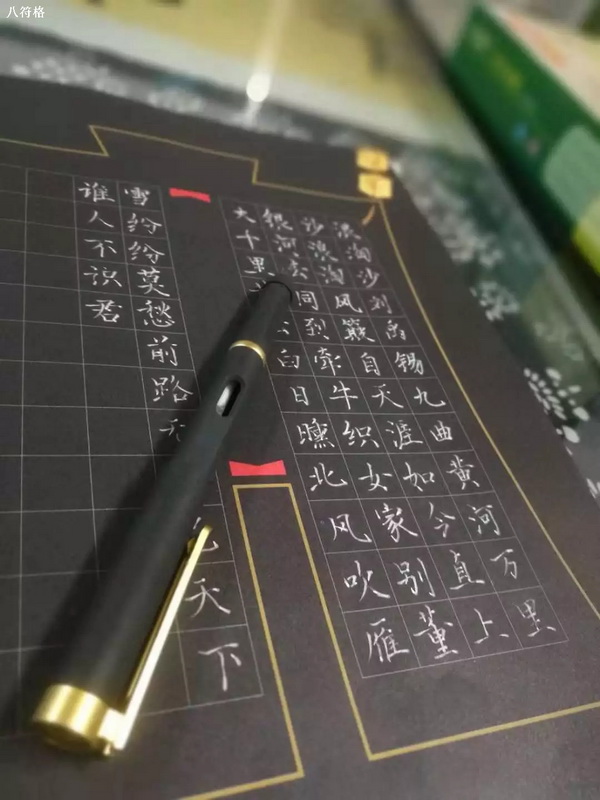 八符格
浪淘沙刘禹锡九曲黄河万里
沙浪淘风簸自天涯如今直上
银河去同到牵牛织女家别董
大十里白日曛北风吹雁
雪纷纷莫愁前路无天下
谁人不识君